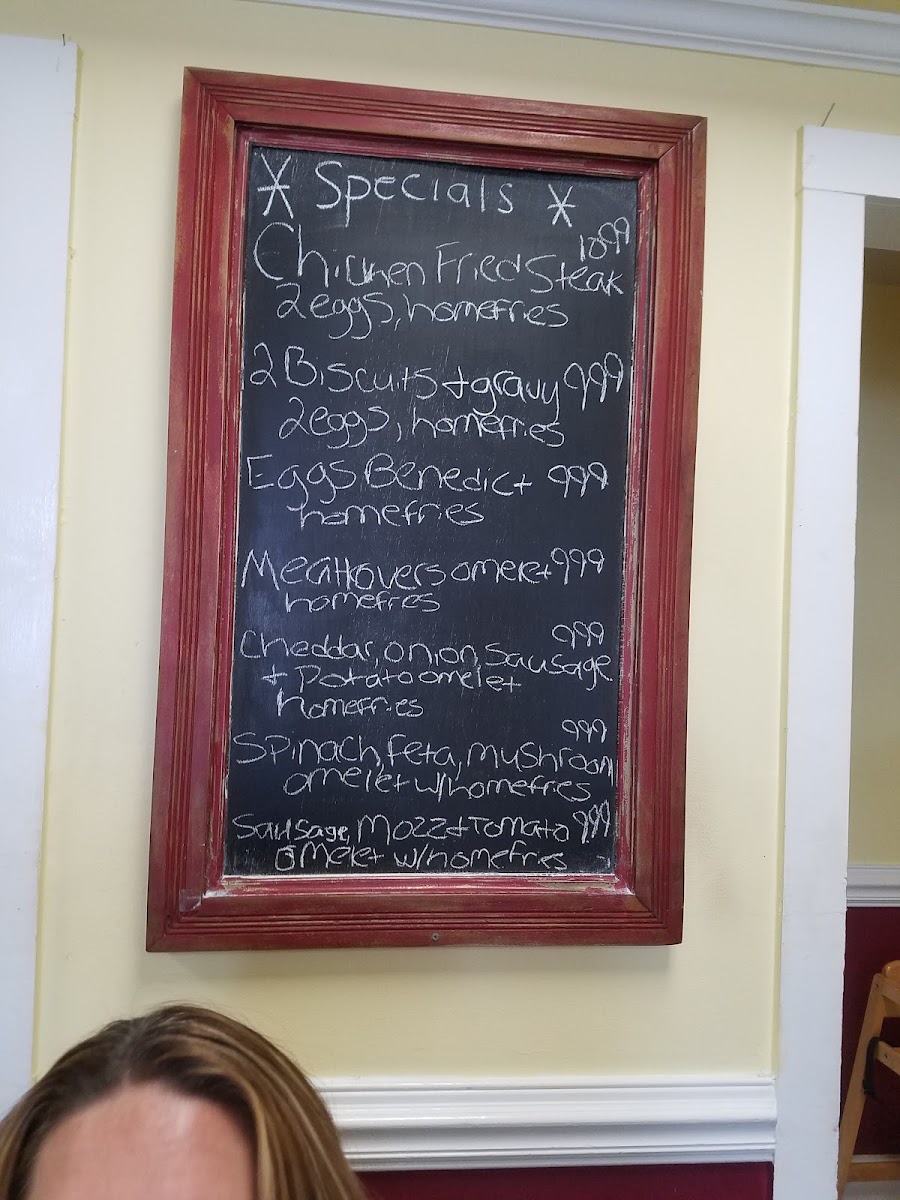 * Specials *
Chicken Fried Steak 1099
2eggs, homefries
2 Biscuits + gravy 999
2eggs, homefries
Eggs Benedict 999
homefries
Meatlovers omelet 999
homefries
Cheddar, onion, sausage 999
+ Potato omelet
homefries
Spinach, feta, mushroom 999
omelet w/homefries
Sausage, Mozz + Tomato 999
Omelet w/homefries